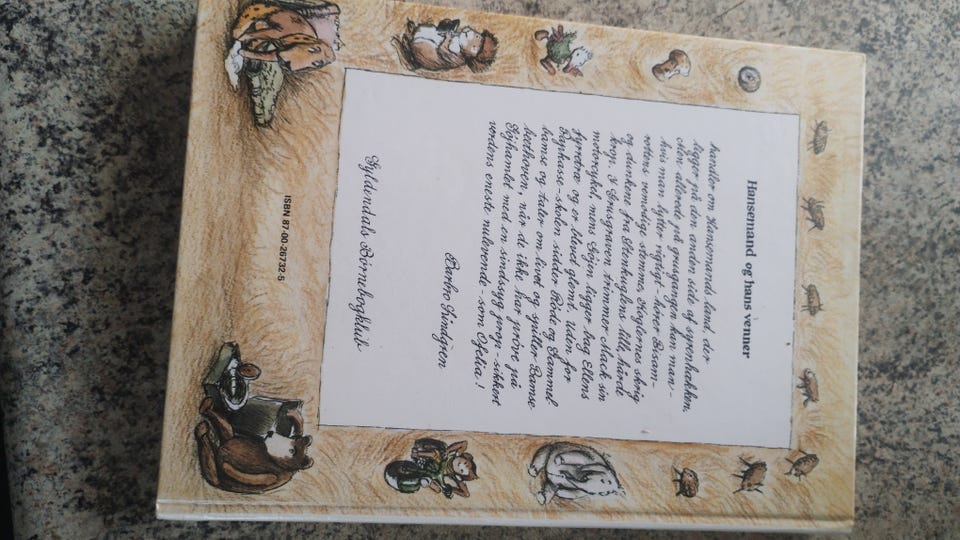 Hansemand og hans venner
handler om Hansemands land, der
ligger på den anden side af syrenhækken.
Men allerede på grusgangen kan man -
hvis man lytter rigtigt - hører Bisam-
rottens vemodige stemme, Koglernes skrig
og dunkene fra Stenkuglens lille, hårde
krop. I Grusgraven trimmer Mack sin
motorcykel, mens Løjn ligger bag Ellens
fyrretræ og er blevet glemt, uden for
Røghasse-skolen sidder Rød og Gammel-
bamse og taler om livet og spiller Bamse-
beethoven, når de ikke har prøve på
Løjhamlet med en sindssyg gevop - sikkert
verdens eneste nulevende - som Ofelia!
Barbro Lindgren
Gyldendals Børnebogklub
ISBN 87-00-26732-5